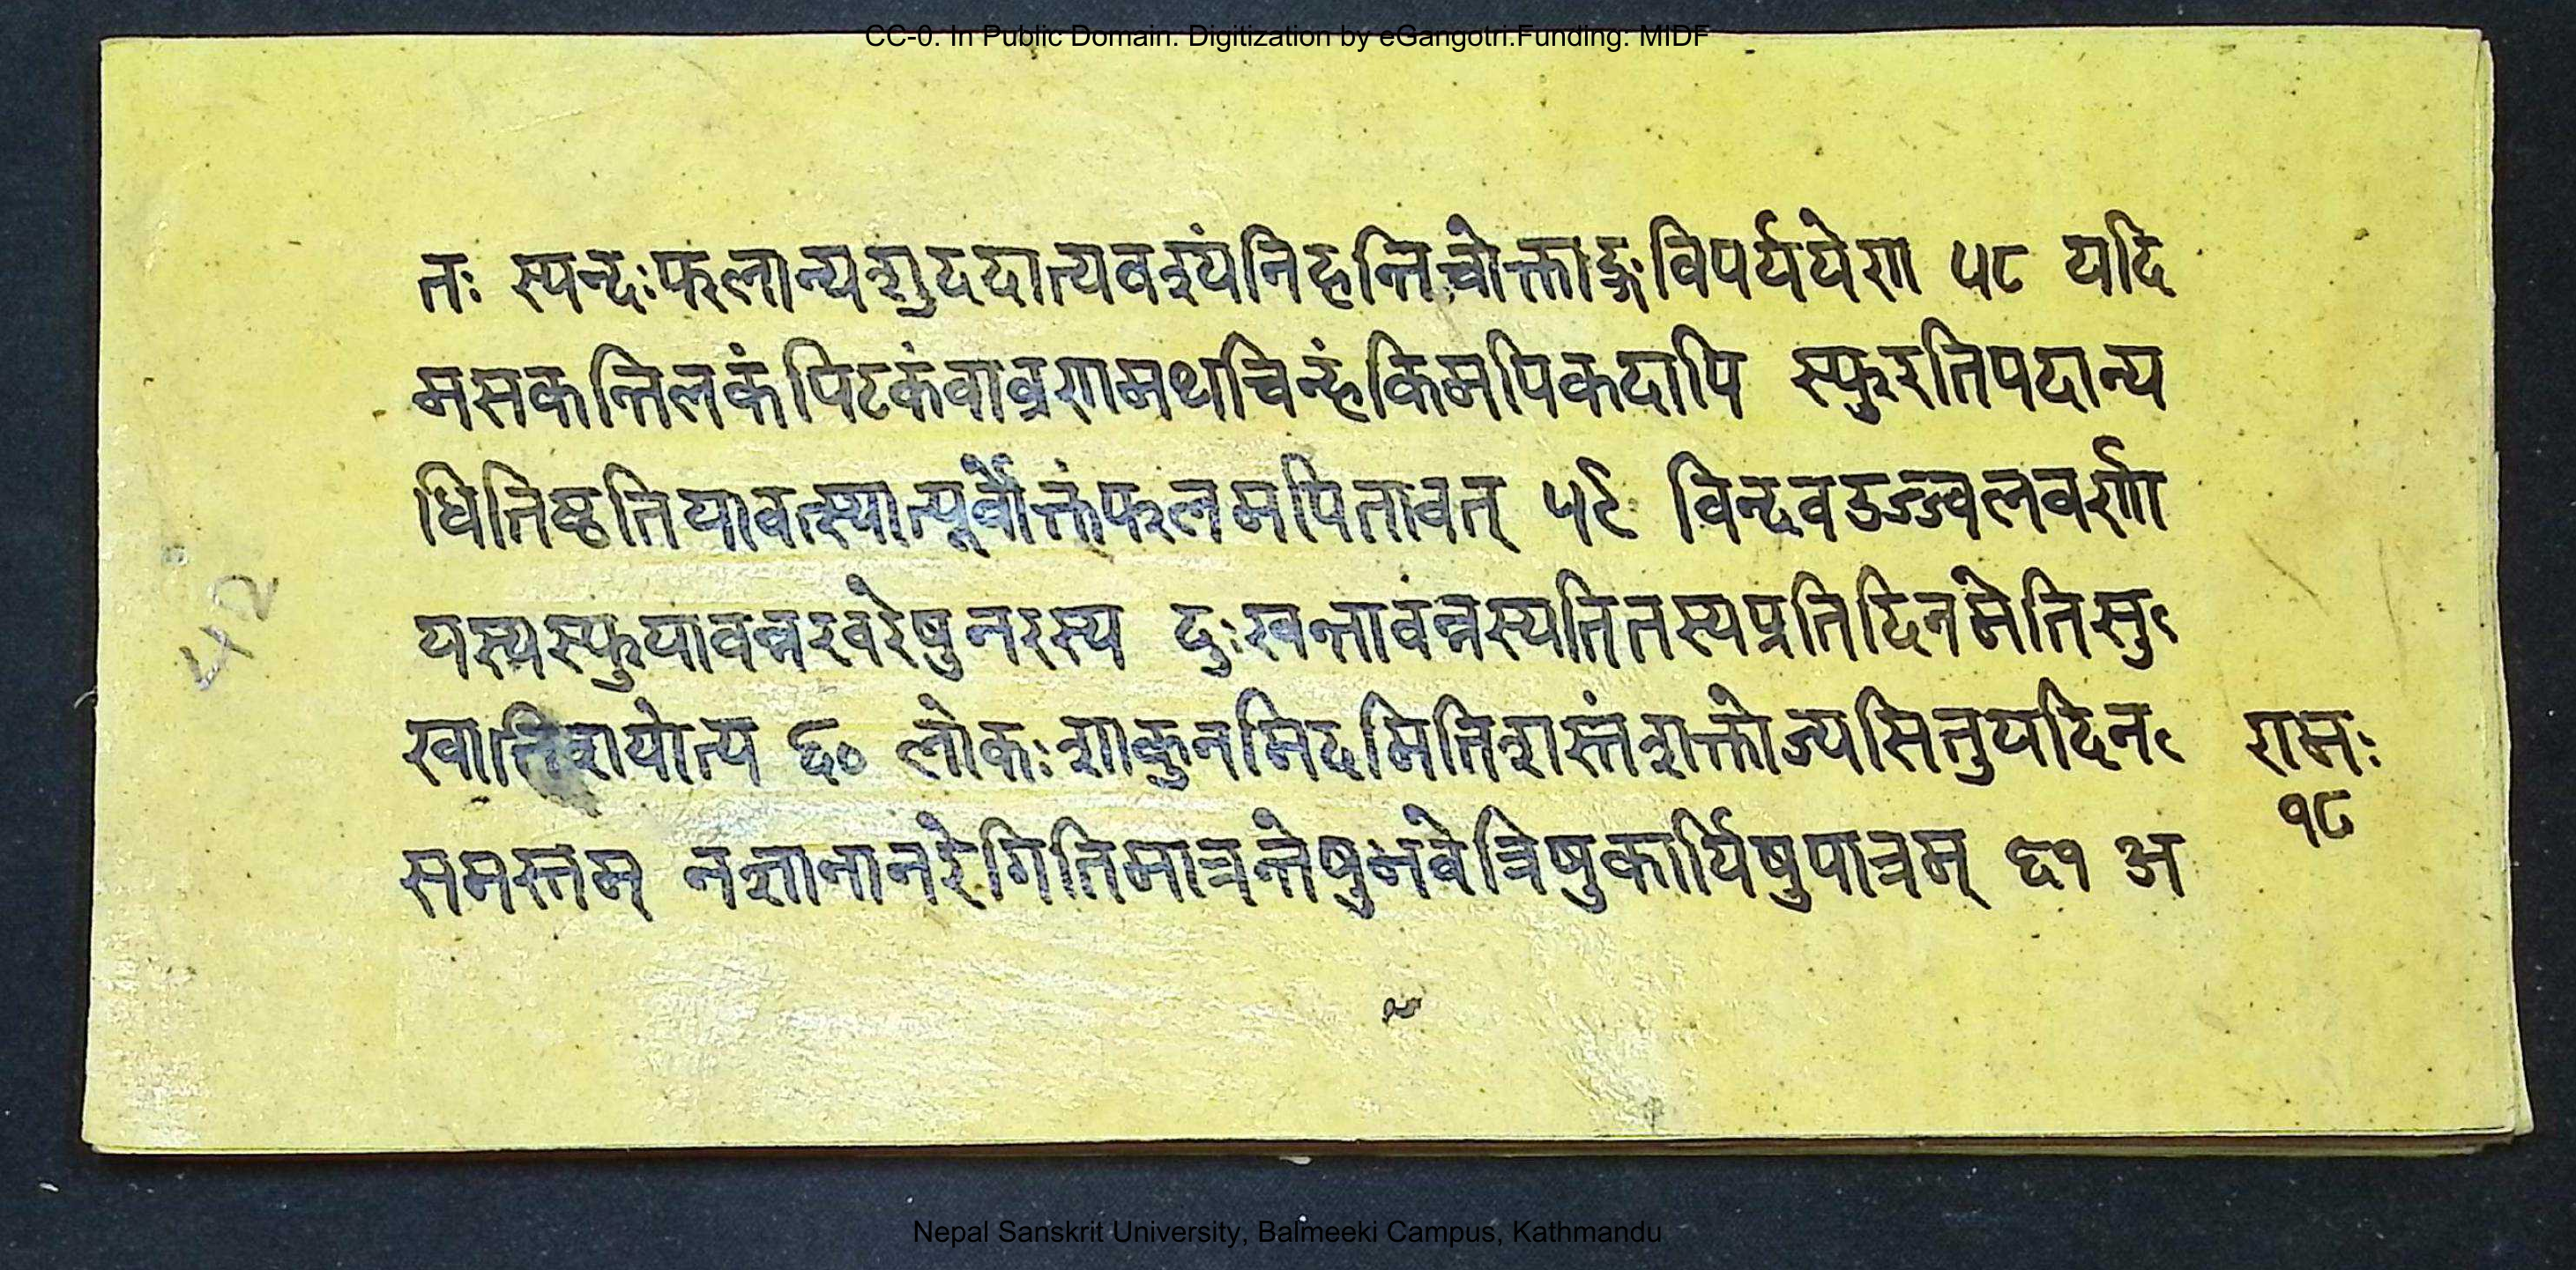 CC-0. In Public Domain. Digitization by eGangotri.Funding: MIDF
तः स्पन्दःफलान्यशुददात्यवश्यंनिहन्तिचोक्ताङ्गविपर्ययेण ५८ यदि
मसकन्तिलकंपिटकंवाव्रणमथचिन्हंकिमपिकदापि स्फुरतिपदान्य
धितिष्ठतियावत्स्यात्पूर्वोक्तंफलमपितावत् ५९ विन्दवउज्ज्वलवर्णा
यस्यस्फुयावन्नखरेषुनरस्य दुःखन्तावंन्नस्यतितस्यप्रतिदिनमेतिसु
खातिशयोत्य ६० लोकःशाकुनमिदमितिशस्तंशक्तोज्यसितुयदिन
समस्तम् नशानानरेगितिमात्रन्तेषुभवेत्रिषुकार्यिषुपात्रम् ६१ अ
रामः
१८
५२
Nepal Sanskrit University, Balmeeki Campus, Kathmandu